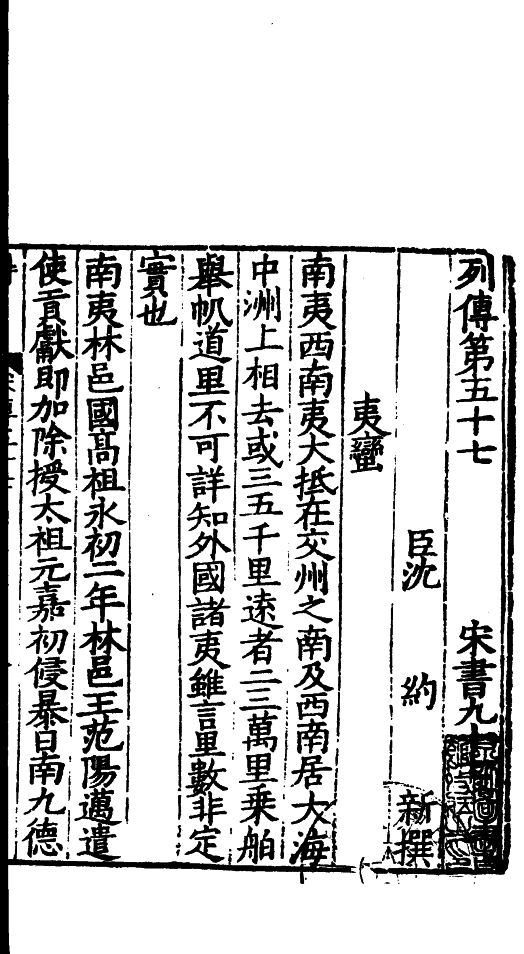 列傳第五十七 宋書九十
臣沈 約 新撰
夷蠻
南夷西南夷大抵在交州之南及西南居大海
中洲上相去或三五千里遠者二三萬里乗舶
舉帆道里不可詳知外國諸夷雖言里數非定
實也
南夷林邑國髙祖永初二年林邑王范陽邁遣
使貢獻即加除授太祖元嘉初侵暴日南九德